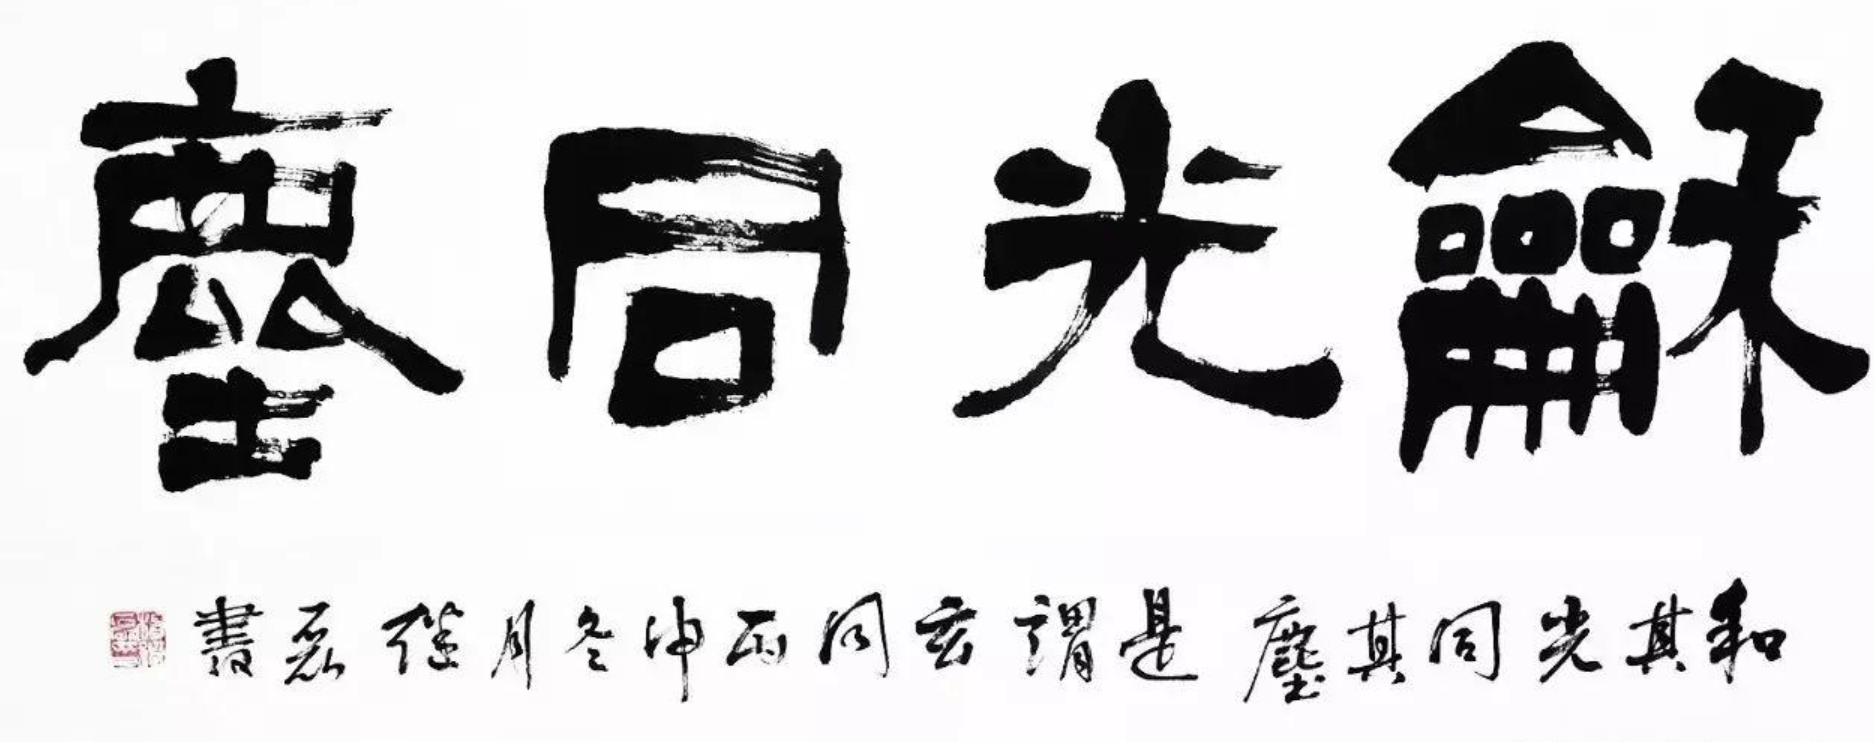 龢光同塵
和其光同其塵是謂玄同丙申冬月继磊書